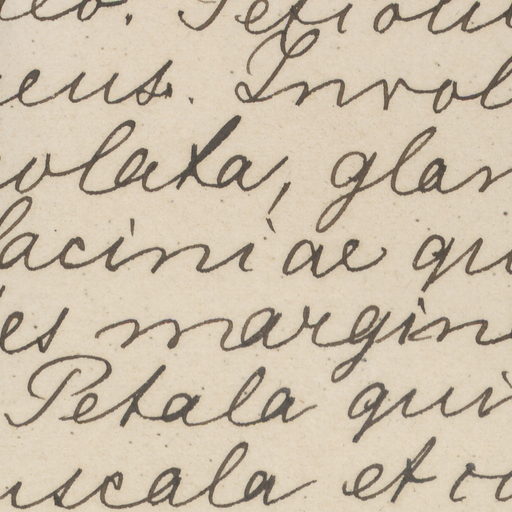 Petiolu
eus. Invol
olata, glan
laciniae qu
es margine
Petala qui
uscala et co